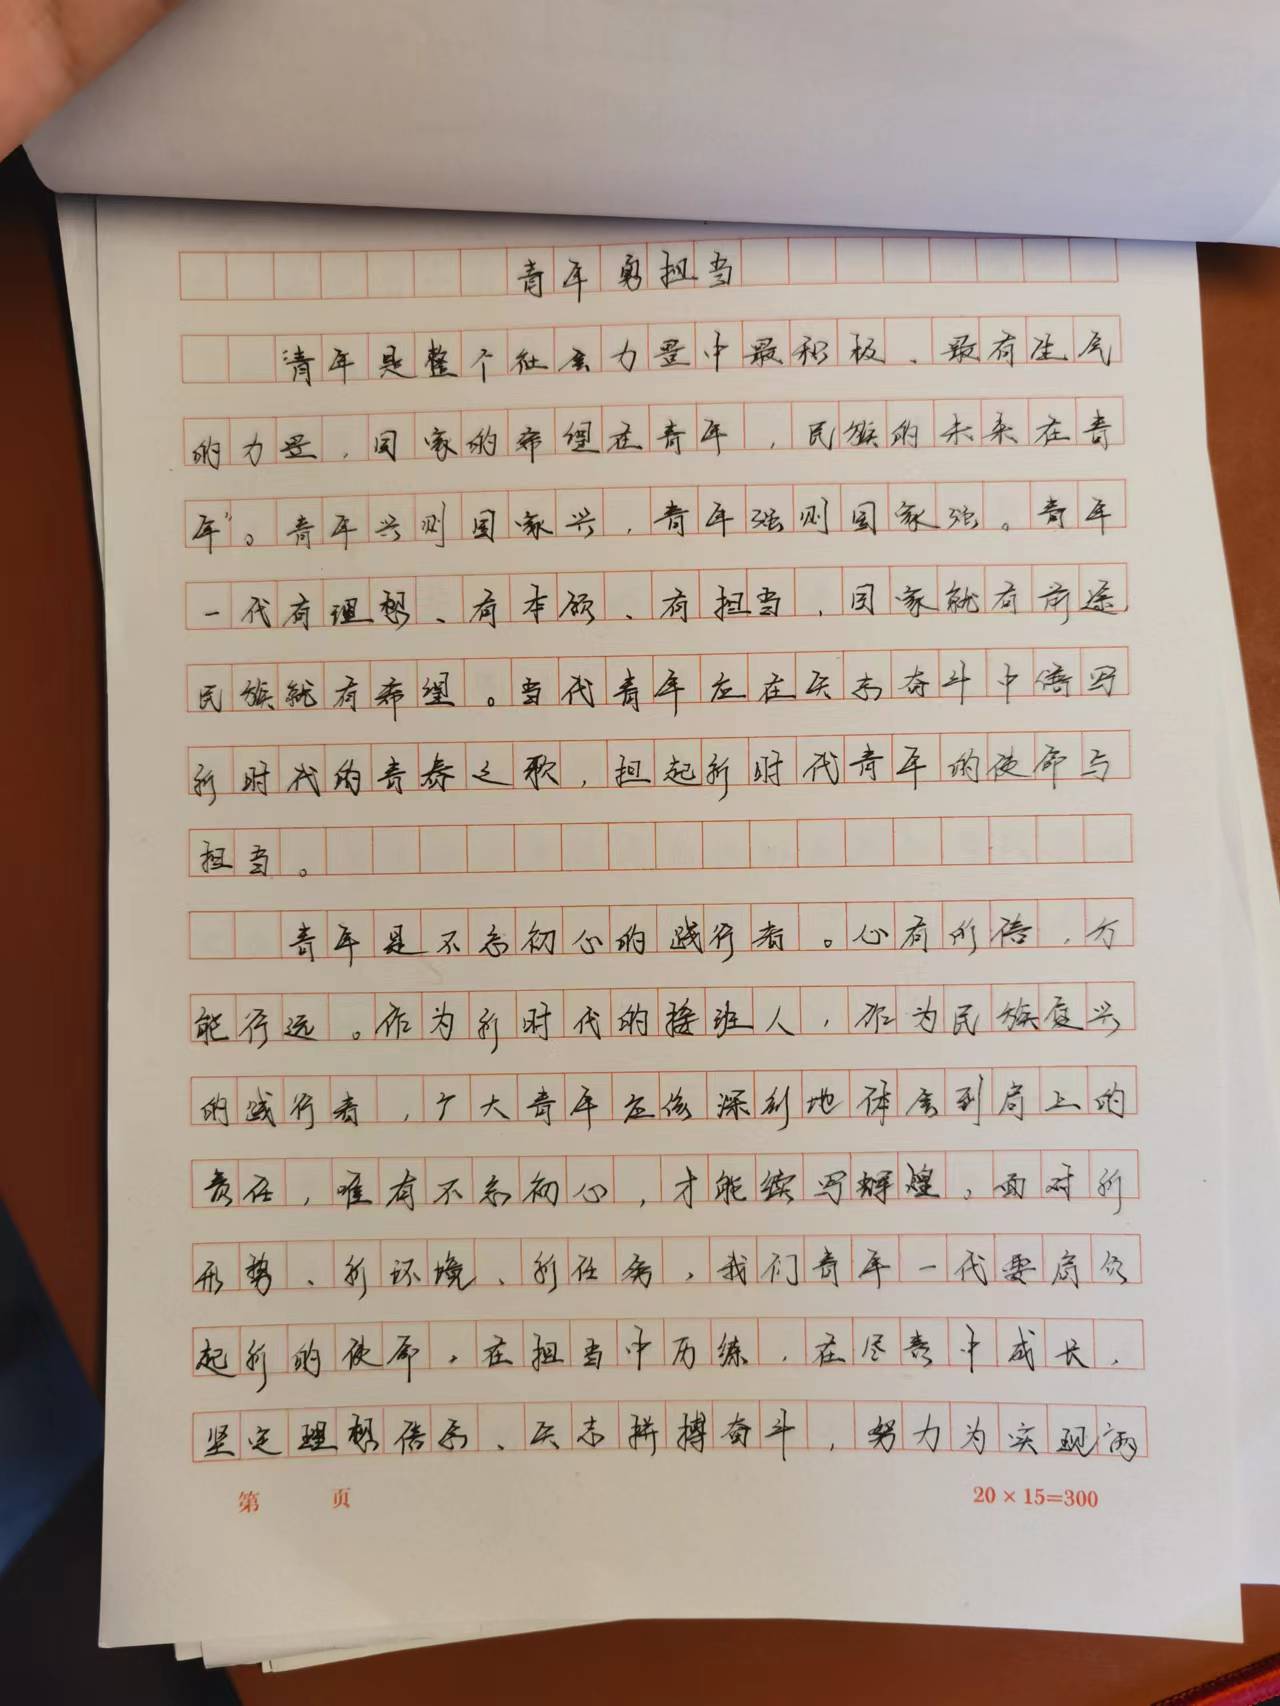 青年勇担当
青年是整个社会力量中最积极、最有生气
的力量，国家的希望在青年，民族的未来在青
年”。青年兴则国家兴，青年强则国家强。青年
一代有理想、有本领、有担当，国家就有前途，
民族就有希望。当代青年应在矢志奋斗中谱写
新时代的青春之歌，担起新时代青年的使命与
担当。
青年是不忘初心的践行者。心有所信，方
能行远。作为新时代的接班人，作为民族复兴
的践行者，广大青年应该深刻地体会到肩上的
责任，唯有不忘初心，才能续写辉煌。面对新
形势、新环境、新任务，我们青年一代要肩负
起新的使命，在担当中历练，在尽责中成长，
坚定理想信念、矢志拼搏奋斗，努力为实现两
第 页
20×15=300